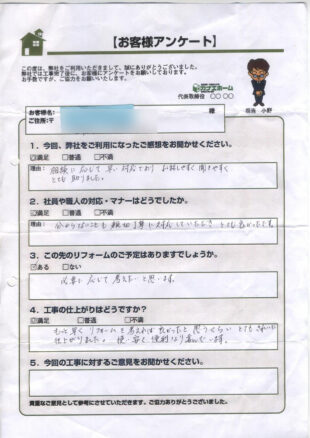 【お客様アンケート】
この度は、弊社をご利用いただきまして、誠にありがとうございました。
弊社では工事完了後に、お客様にアンケートをお願いしております。
お手数ですが、ご協力をお願いいたします。
代表取締役 〇〇 〇〇
担当 小野
お客様名:
様
ご住所:〒
1．今回、弊社をご利用になったご感想をお聞かせください。
☑満足 □普通 □不満
理由: 相談に応じて早い対応でおり お話しやすく聞きやすく
とても助りました。
2．社員や職人の対応・マナーはどうでしたか。
☑満足 □普通 □不満
理由: 分からないことも親切丁寧に対応していただき とても良かったです。
3．この先のリフォームのご予定はありますでしょうか。
☑ある □ない
必要に応じて考えたいと思います。
4．工事の仕上がりはどうですか？
☑満足 □普通 □不満
もっと早くリフォームを考えれば良かったと思うくらい とてもきれいに
仕上がりました。使い安く便利になり喜んでいます。
5．今回の工事に対するご意見をお聞かせください。
貴重なご意見として参考にさせていただきます。ご協力ありがとうございました。